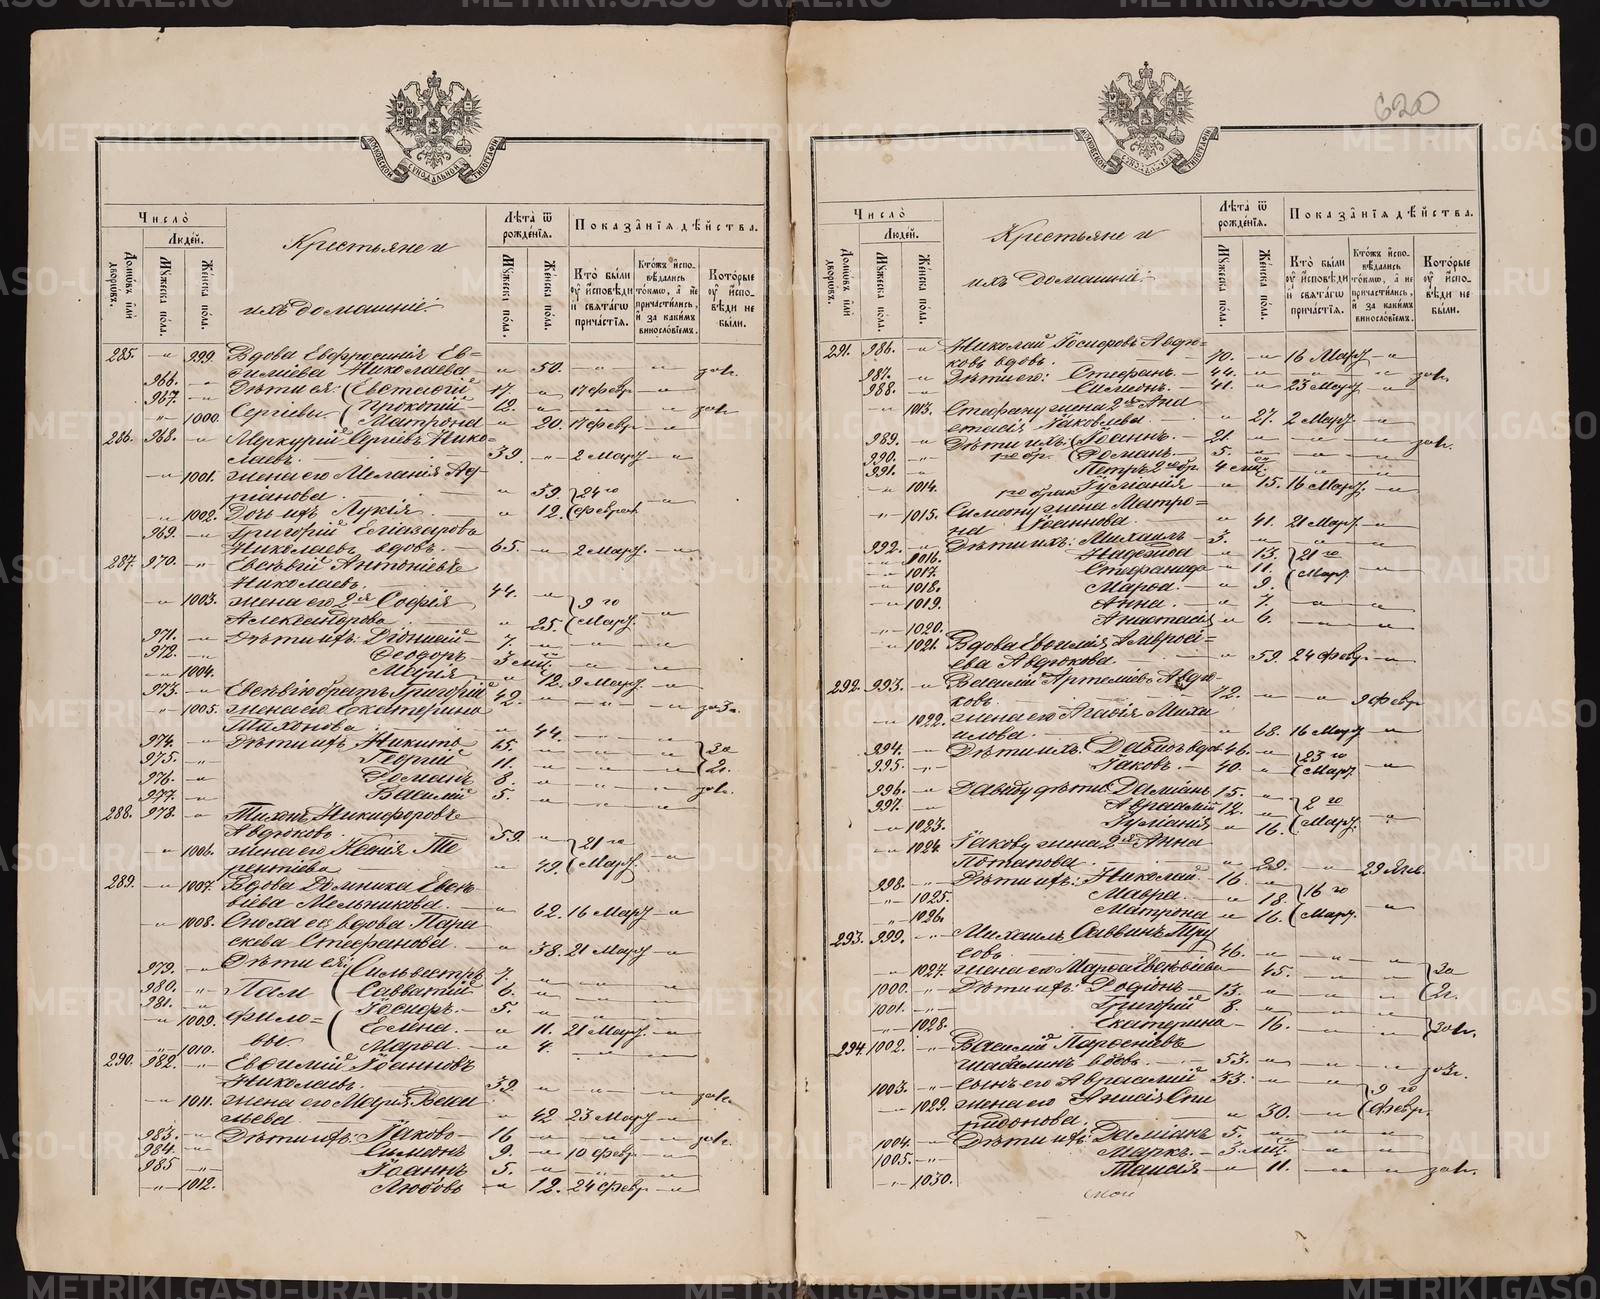 620
МОСКОВСКОЙ СѴНОДАЛЬНОЙ ТИПОГРАФІИ
Число̀
Людей.
Домовъ или дворовъ.
Мꙋжеска пола.
Женска пола.
Крестьяне и
ихъ домашніе.
Лѣта ѿ рожденїѧ.
Мꙋжеска пола.
Женска пола.
Показанїѧ дѣйства.
Кто были ᲂу҆ исповѣди и свѧтагѡ причастїѧ.
Ктожъ исповѣдались токмѡ, а не причастились, и за какимъ винословїемъ.
Которые ᲂу҆ исповѣди не были.
285. -"- 999. Вдова Евфросинія Ев=
фиміева Николаева " 50. " "
966. -"- Дѣти ея: Евстафій 17. " 17 Февр. -"-
967. -"- Сергѣевы Прокопій 12. "
-"- 1000. Матрона " 20. 17 Февр. -"-
286. 968. -"- Меркурій Сергіевъ Нико=
лаевъ. 39. " 2 Март. -"-
-"- 1001. Жена его Меланія Ад=
ріанова " 59. 24 го
-"- 1002. Дочь ихъ Лукія " 12. Февраля
969. -"- Григорій Еліазаровъ
Николаевъ вдовъ. 65. " 2 Март. -"-
287. 970. -"- Евсевій Антоніевъ
Николаевъ. 44. "
-"- 1003. Жена его 2я Софія 9 го
Александрова " 25. Март. -"-
971. -"- Дѣти ихъ: Діонисій 7. "
972. -"- Ѳеодоръ 3 мѣс.
-"- 1004. Марія " 12. 9 Март. -"-
973. -"- Евсевію братъ Григорій 42. "
-"- 1005. Жена его Екатерина
Тихонова " 44. -"-
974. -"- Дѣти ихъ: Никита 15. "
975. -"- Георгій 11. " 2г.
976. -"- Романъ 8. "
977. -"- Василій 5. "
288. 978. -"- Тихонъ Никифоровъ
Авдюковъ. 59. " 21 го
-"- 1006. Жена его Ксенія Те
рентіева " 49. Март. -"-
289. -"- 1007. Вдова Домника Евсе=
віева Мельникова. " 62. 16 Март. -"-
-"- 1008. Сноха ея вдова Пара
скева Стефанова. " 38. 21 Март. -"-
979. -"- Дѣти ея: Сильвестръ 7. "
980. -"- Савватій 6. "
981. -"- Іосифъ. 5. "
-"- 1009. Фило= Елена. " 11. 21 Март. -"-
-"- 1010. вы. Марѳа. " 4.
290. 982. -"- Евѳимій Іоанновъ
Николаевъ. 39. "
-"- 1011. Жена его Марія Васи
льева " 42 23 Март. -"-
983. -"- Дѣти ихъ: Іаковъ 16 "
984. -"- Симеонъ 9. " 10 Февр. -"-
985 -"- Іоаннъ 5. "
-"- 1012. Любовь " 12. 24 Февр. -"-
МОСКОВСКОЙ СѴНОДАЛЬНОЙ ТИПОГРАФІИ
Число̀
Людей.
Домовъ или дворовъ.
Мꙋжеска пола.
Женска пола.
Крестьяне и
ихъ домашніе.
Лѣта ѿ рожденїѧ.
Мꙋжеска пола.
Женска пола.
Показанїѧ дѣйства.
Кто были ᲂу҆ исповѣди и свѧтагѡ причастїѧ.
Ктожъ исповѣдались токмѡ, а не причастились, и за какимъ винословїемъ.
Которые ᲂу҆ исповѣди не были.
291. 986. -"- Николай Авдю=
ковъ вдовъ. 70. " 16 Март. -"-
987. -"- Дѣти его: Стефанъ 44. "
988. -"- Симеонъ. 41. " 23 Март. -"-
-"- 1013. Стефану жена 2я Ана
стасія Іаковлева " 27. 2 Март. -"-
989. -"- Дѣти ихъ: Іоаннъ. 21. "
990. -"- 1го бр. Романъ. 5. "
991. -"- Петръ 2го бр. 4 мѣс.
-"- 1014. 1го брака Іуліанія " 15. 16 Март. -"-
-"- 1015. Симеону жена Матро=
на Іоаннова. " 41. 21 Март. -"-
992. -"- Дѣти ихъ: Михаилъ 3. "
-"- 1016. Надежда " 13. 21 го
-"- 1017. Стефанида " 11. Март.
-"- 1018. Марѳа. " 9.
-"- 1019. Анна. " 7.
-"- 1020. Анастасія " 6.
-"- 1021. Вдова Евѳимія Амвросі=
ева Авдюкова " 59. 24 Февр. -"-
292. 993. -"- Василій Артеміевъ Авдю=
ковъ. 72. " " 9 Февр.
-"- 1022. Жена его Агаѳія Миха
илова. " 68. 16 Март. -"-
994. -"- Дѣти ихъ: Давидъ вдов. 46. " 23 го
995. -"- Іаковъ 40. " Март. -"-
996. -"- Давиду дѣти: Даміанъ 15. "
997. -"- Авраамій 12. " 2 го
-"- 1023. Іуліанія " 16. Март. -"-
-"- 1024. Іакову жена 2я Анна
Потапова. " 29. " 29 Янв.
998. -"- Дѣти ихъ: Николай 16. "
-"- 1025. Мавра. " 18. 16 го
-"- 1026. Матрона " 16. Март. -"-
293. 999. -"- Михаилъ Саввинъ Тру
совъ. 46. "
-"- 1027. Жена его Марѳа Евсевіева 45.
1000. -"- Дѣти ихъ: Родіонъ 13. " 2г.
1001. -"- Григорій 8. "
-"- 1028. Екатерина 16.
294. 1002. -"- Василій Парѳеніевъ
Шабалинъ вдовъ. 53. "
1003. -"- Сынъ его Авраамій 33. " 9 го
-"- 1029. Жена его Анисія Спи
ридонова. " 30. Февр.
1004. -"- Дѣти ихъ: Даміанъ 5. "
1005. -"- Маркъ. 3 мѣс.
-"- 1030. Таисія " 11.
METRIKI.GASO-URAL.RU